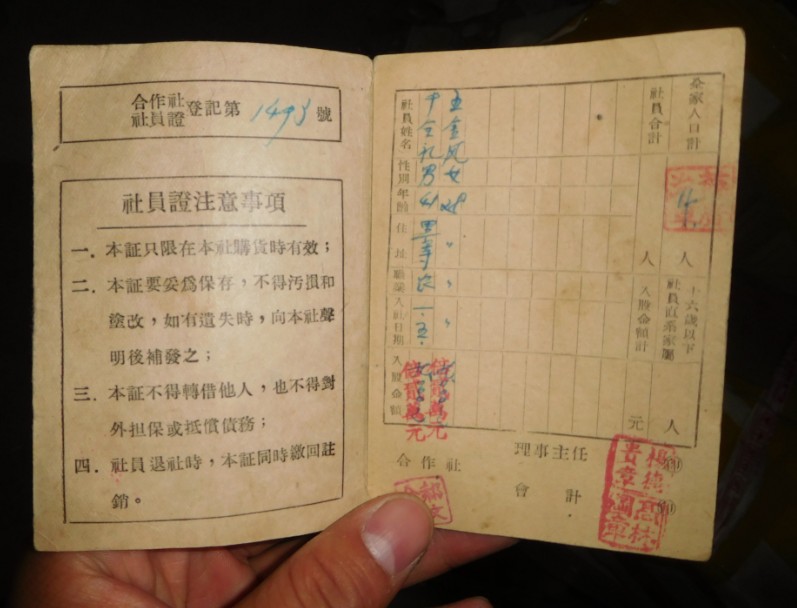 合作社
社員證
登記第 1493 號
社員證注意事項
一．本証只限在本社購貨時有效；
二．本証要妥爲保存，不得污損和
塗改，如有遺失時，向本社聲
明後補發之；
三．本証不得轉借他人，也不得對
外担保或抵償債務；
四．社員退社時，本証同時繳回註
銷。
全家人口計
人
十六歲以下
社員直系家屬
人
社員合計
人
入股金額計
元
社員姓名
性別
年齡
住址
職業
入社日期
入股金額
男 41
女
萬元
萬元
合作社
理事主任
會計